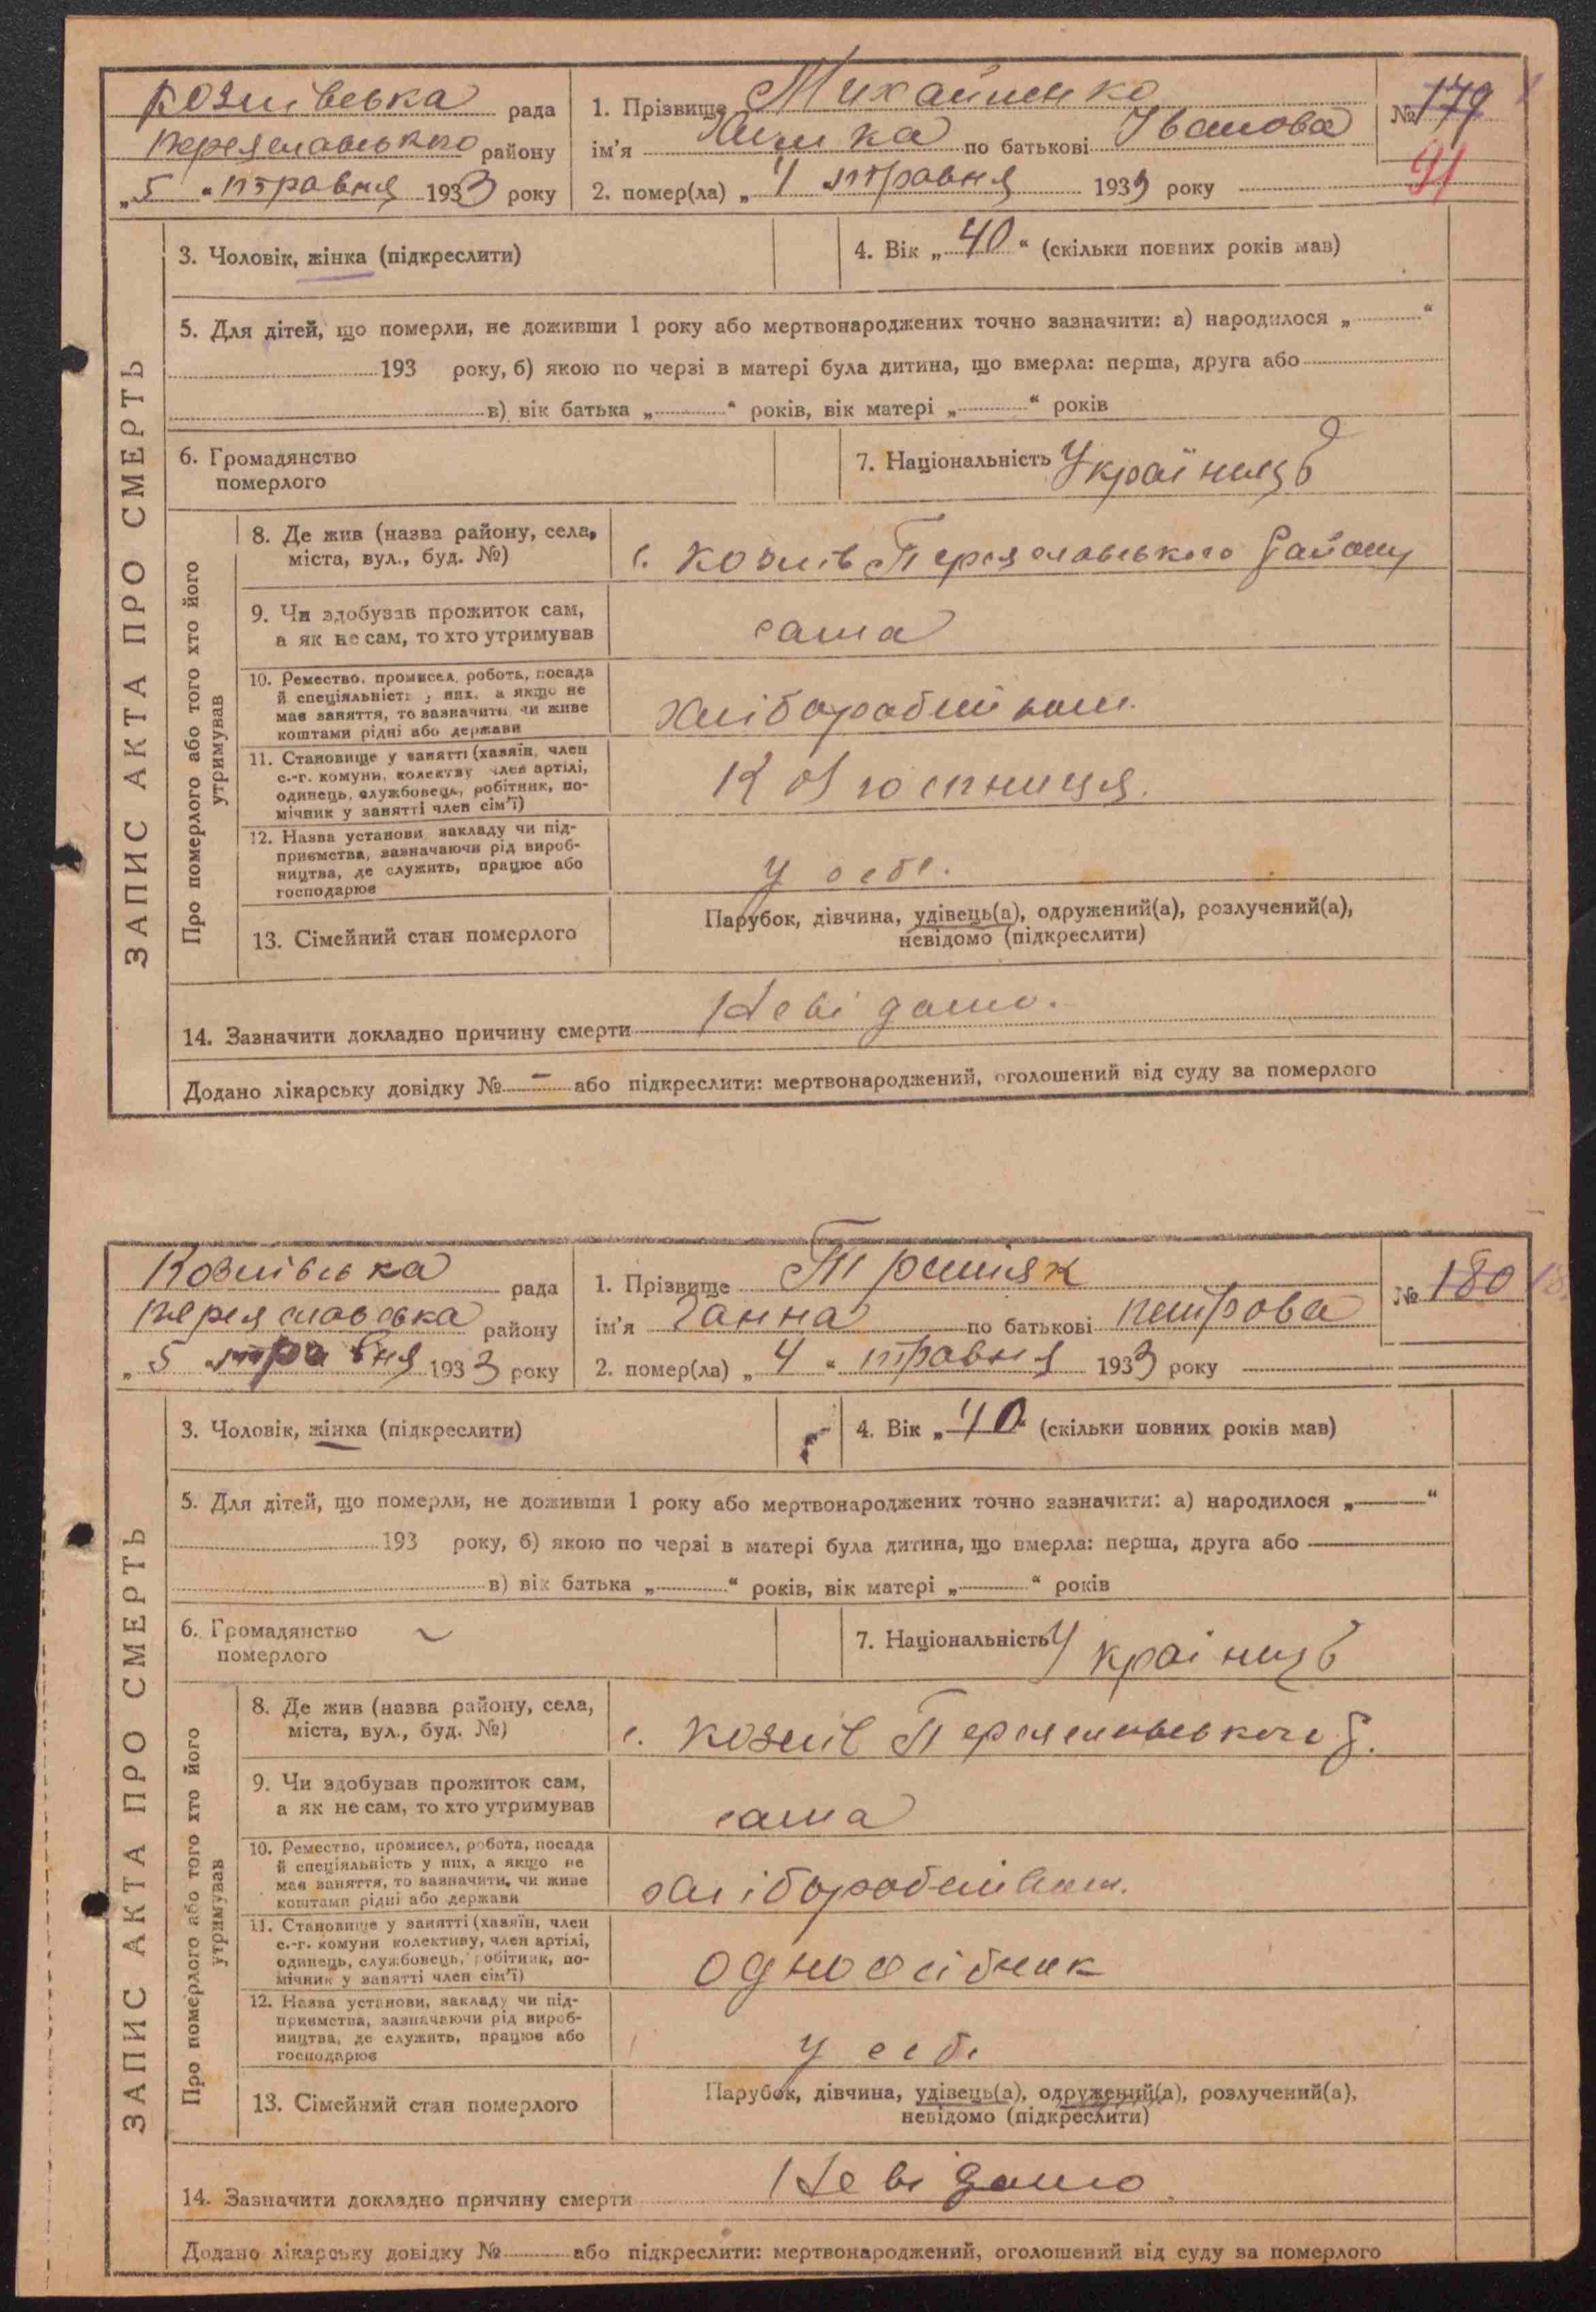 Козлівська рада
Переяславського району
„5“ травня 1933 року
1. Прізвище Михайленко
ім'я по батькові Іванова
2. помер(ла) „4 травня 1933 року
№ 179
91
ЗАПИС АКТА ПРО СМЕРТЬ
3. Чоловік, жінка (підкреслити)
4. Вік „40“ (скільки повних років мав)
5. Для дітей, що померли, не доживши 1 року або мертвонароджених точно зазначити: а) народилося „ “
193 року, б) якою по черзі в матері була дитина, що вмерла: перша, друга або
в) вік батька „ “ років, вік матері „ “ років
6. Громадянство
померлого
7. Національність Українець
Про померлого або того хто його
утримував
8. Де жив (назва району, села,
міста, вул., буд. №)
с. Козлів Переяславського району
9. Чи здобував прожиток сам,
а як не сам, то хто утримував
сама
10. Ремество, промисел, робота, посада
й спеціяльність у них, а якщо не
має заняття, то зазначити, чи живе
коштами рідні або держави
хліборобством.
11. Становище у занятті (хазяїн, член
с.-г. комуни, колективу член артілі,
одинець, службовець, робітник, по-
мічник у занятті член сім'ї)
12. Назва установи, закладу чи під-
приємства, зазначаючи рід вироб-
ництва, де служить, працює або
господарює
у себе.
13. Сімейний стан померлого
Парубок, дівчина, удівець(а), одружений(а), розлучений(а),
невідомо (підкреслити)
14. Зазначити докладно причину смерти Невідомо.
Додано лікарську довідку № – або підкреслити: мертвонароджений, оголошений від суду за померлого
Козлівська рада
Переяславська району
„5 травня 1933 року
1. Прізвище
ім'я Ганна по батькові петрова
2. помер(ла) „4“ травня 1933 року
№ 180
ЗАПИС АКТА ПРО СМЕРТЬ
3. Чоловік, жінка (підкреслити)
4. Вік „40“ (скільки повних років мав)
5. Для дітей, що померли, не доживши 1 року або мертвонароджених точно зазначити: а) народилося „ “
193 року, б) якою по черзі в матері була дитина, що вмерла: перша, друга або
в) вік батька „ “ років, вік матері „ “ років
6. Громадянство
померлого
7. Національність Українець
Про померлого або того хто його
утримував
8. Де жив (назва району, села,
міста, вул., буд. №)
с. Козлів Переяславського р.
9. Чи здобував прожиток сам,
а як не сам, то хто утримував
сама
10. Ремество, промисел, робота, посада
й спеціяльність у них, а якщо не
має заняття, то зазначити, чи живе
коштами рідні або держави
хліборобством.
11. Становище у занятті (хазяїн, член
с.-г. комуни колективу, член артілі,
одинець, службовець, робітник, по-
мічник у занятті член сім'ї)
одноосібник
12. Назва установи, закладу чи під-
приємства, зазначаючи рід вироб-
ництва, де служить, працює або
господарює
у себе
13. Сімейний стан померлого
Парубок, дівчина, удівець(а), одружений(а), розлучений(а),
невідомо (підкреслити)
14. Зазначити докладно причину смерти Невідомо
Додано лікарську довідку № або підкреслити: мертвонароджений, оголошений від суду за померлого